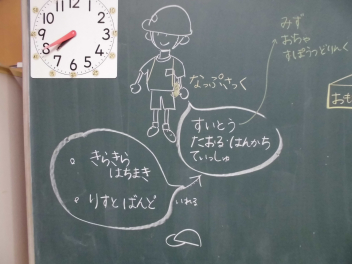 12
11
1
10
2
9
3
8
4
7
5
6
みず
おちゃ
すぽうつどりんく
なっぷさっく
すいとう
たおる・はんかち
てぃっしゅ
きらきら
はちまき
りすとばんど
いれる
おも